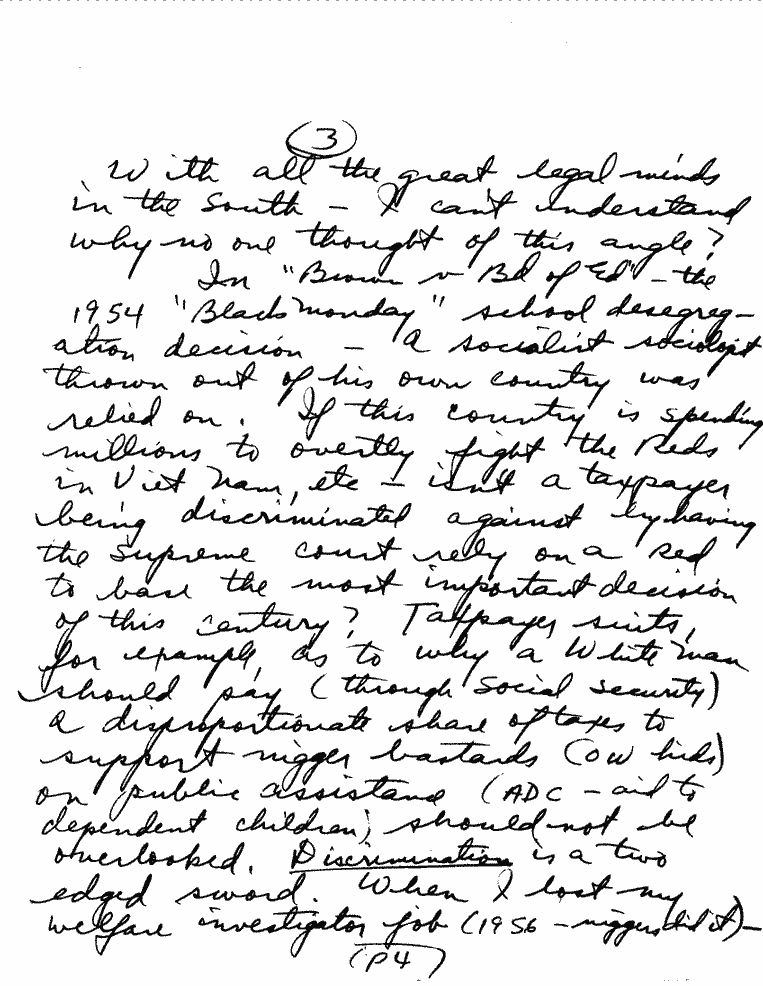 (3)
With all the great legal minds
in the South - I can't understand
why no one thought of this angle?
In "Brown v Bd of Ed" - the
1954 "Black Monday" school desegreg-
ation decision - a socialist sociologist
thrown out of his own country was
relied on. If this country is spending
millions to overtly fight the Reds
in Viet Nam, etc - isn't a taxpayer
being discriminated against by having
the Supreme court rely on a Red
to base the most important decision
of this century? Taxpayer suits,
for example, as to why a White man
should pay (through Social Security)
a disproportionate share of taxes to
support nigger bastards (OW kids)
on public assistance (ADC - aid to
dependent children) should not be
overlooked. Discrimination is a two
edged sword. When I lost my
welfare investigator job (1956 - niggers did it) -
(P4)